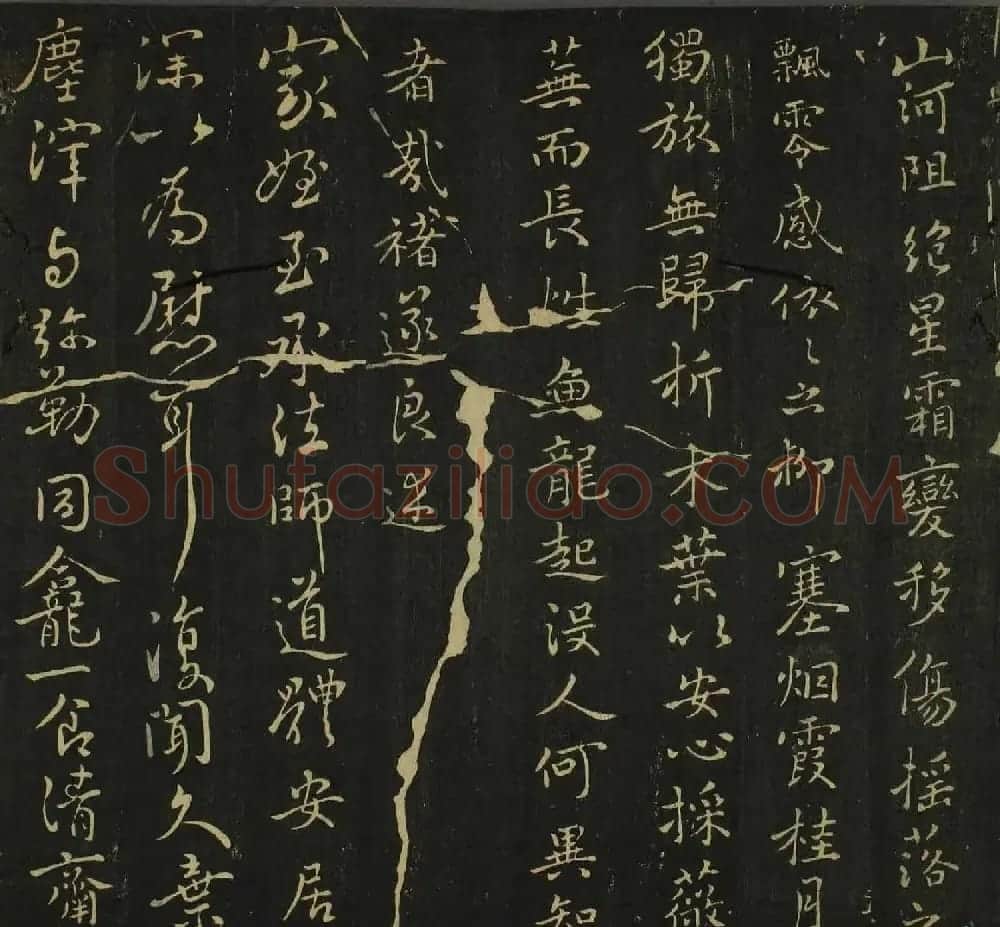 山河阻绝星霜變移傷摇落
飄零感依〻之柳塞烟霞桂月
獨旅無歸折木葉以安心採薇
蕪而長性魚龍起没人何異知
者哉褚遂良述
家姪至承法師道體安居
深以為慰耳復聞久棄
塵滓与弥勒同龕一食清齋
Shufaziliao.COM